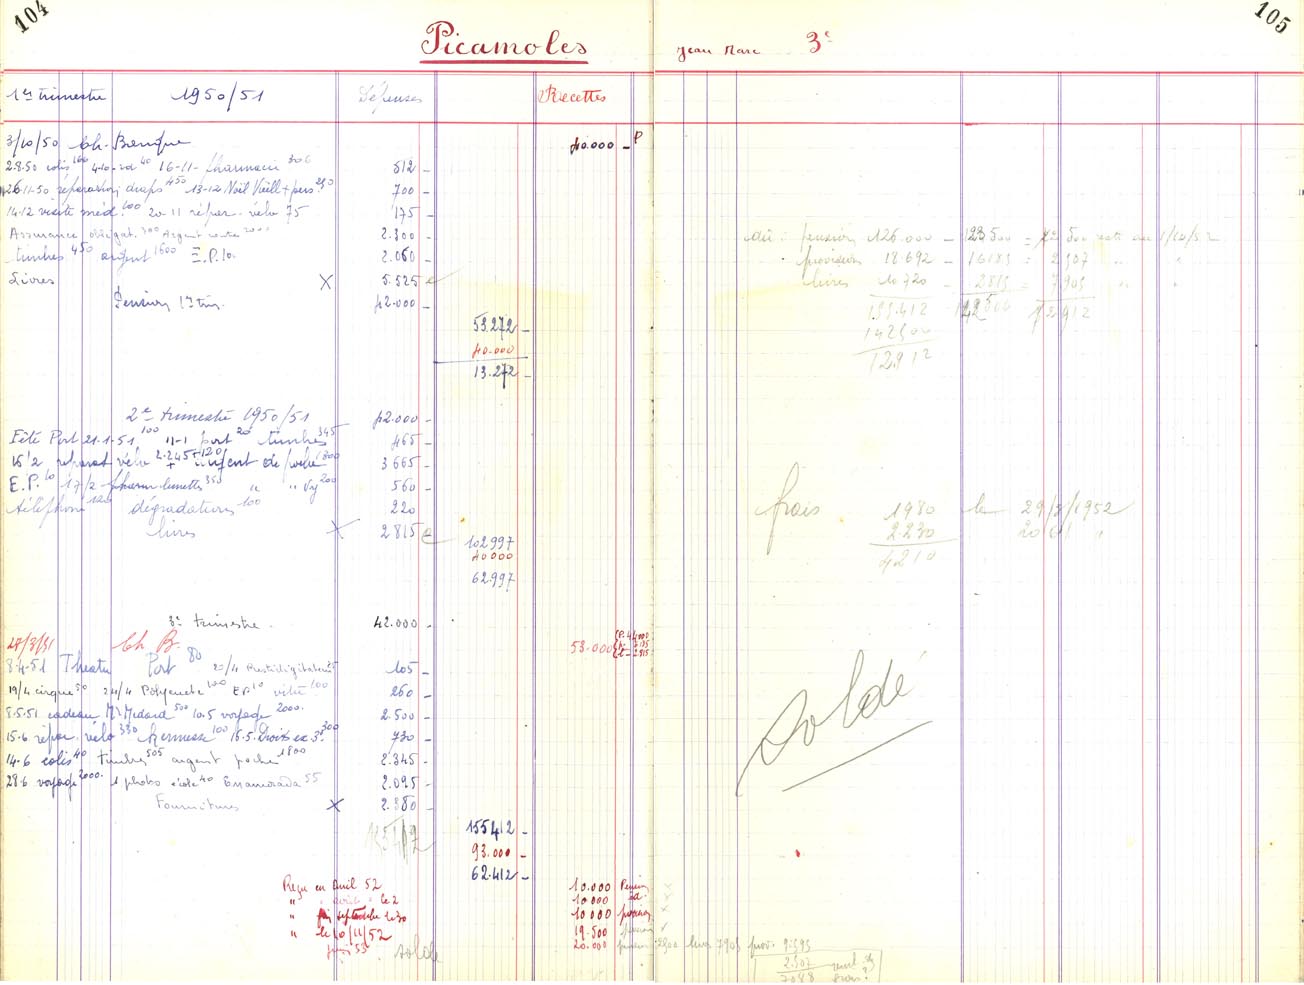 104
105
Picamoles Jean Marc 3e
1er trimestre 1950/51 Dépenses Recettes
3/10/50 Ch. Banque 40.000 - P
2.8.50 colis 4-10 40 16-11- pharmacie 512 -
26-11-50 réparation draps 450 13-12 Noël Vieill + pers. 250 700 -
14-12 visite méd. 100 20-11 répar. vélo 75 175 -
Assurance obligat. 300 Argent 2000 2.300 -
timbres 450 argent 1600 E.P. 10. 2.060 -
Livres X 5.525
Pension 1er trim. 42.000 -
53.272 -
40.000
13.272 -
2e trimestre 1950/51 42.000 -
Fête Port 21-1-51 100 11-1 port 20 timbres 345 465 -
15'2 réparat vélo 2.245 + 120 + argent de poche 1300 3665 -
E.P. 10 17/2 pharm lunettes 350 " " 200 560 -
téléphone 120 dégradations 100 220
livres X 2.815
102.997
40000
62.997
3e trimestre. 42.000 -
28/3/51 Ch B. 53.000
8-4-51 Theatre Port 80 2/4 Prestidigitateur 25 105 -
19/4 cirque 50 24/4 Polyeucte 100 EP. 10 visite 100 260 -
8.5.51 cadeau Mr Médard 500 10.5 voyage 2000. 2.500 -
15-6 répar. vélo 330 Kermesse 100 15.5. Droits ex. 300 730 -
14-6 colis 40 timbres 505 argent poche 1800 2.345 -
28-6 voyage 2000. 1 photo école 40 Enamorada 55 2.095 -
Fournitures X 2.380 -
155.412 -
93.000 -
62.412 -
Reçu en Avril 52 10.000 Pension
" le 2 10.000 id.
" septembre le 30 10.000 pension
" le 10/11/52 19.500 pension
juin 53 solde 20.000 pension 2500 livres 7905 prov. 9.595
2.507
7088
dû : pension 126.000 - 123.500 = 2.500 reste au 1/10/52
provision 18.692 - 16185 = 2.507 " "
livres 10720 - 2815 = 7905 " "
155.412 142500 12912
142500
12912
frais 1980 le 29/2/1952
2.230 "
4210
soldé